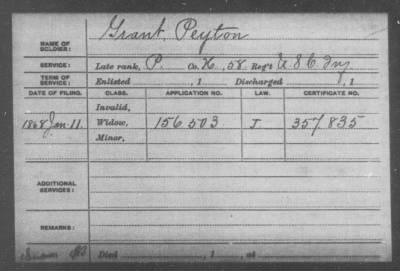 Grant, Peyton
NAME OF SOLDIER:
SERVICE: Late rank, P. Co. K, 58 Reg't U S C Inf
TERM OF SERVICE: Enlisted , 1 Discharged , 1
DATE OF FILING. CLASS. APPLICATION NO. LAW. CERTIFICATE NO.
Invalid,
1868 Jan. 11. Widow, 156 503 J 357.835
Minor,
ADDITIONAL SERVICES:
REMARKS:
Died , 1 , at